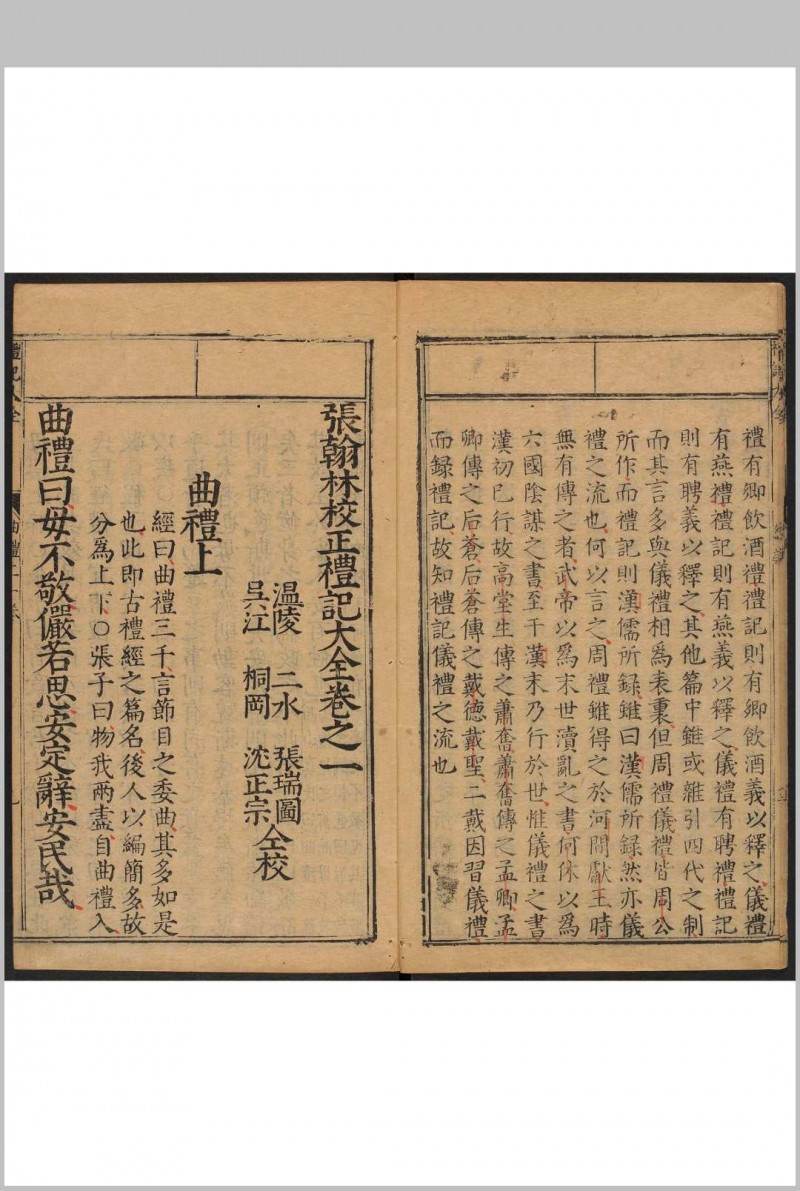 禮有鄉飲酒禮禮記則有鄉飲酒義以釋之儀禮
有燕禮禮記則有燕義以釋之儀禮有聘禮禮記
則有聘義以釋之其他篇中雖或雜引四代之制
而其言多與儀禮相爲表裏但周禮儀禮皆周公
所作而禮記則漢儒所録雖曰漢儒所録然亦儀
禮之流也何以言之周禮雖得之於河間獻王時
無有傳之者武帝以爲末世瀆亂之書何休以爲
六國陰謀之書至于漢末乃行於世惟儀禮之書
漢初已行故高堂生傳之蕭奮蕭奮傳之孟卿孟
卿傳之后蒼后蒼傳之戴德戴聖二戴因習儀禮
而録禮記故知禮記儀禮之流也
張翰林校正禮記大全卷之一
温陵 二水 張瑞圖
吳江 桐岡 沈正宗 仝校
曲禮上
經曰曲禮三千言節目之委曲其多如是
也此即古禮經之篇名後人以編簡多故
分爲上下○張子曰物我兩盡自曲禮入
曲禮曰毋不敬儼若思安定辭安民哉
禮記大全